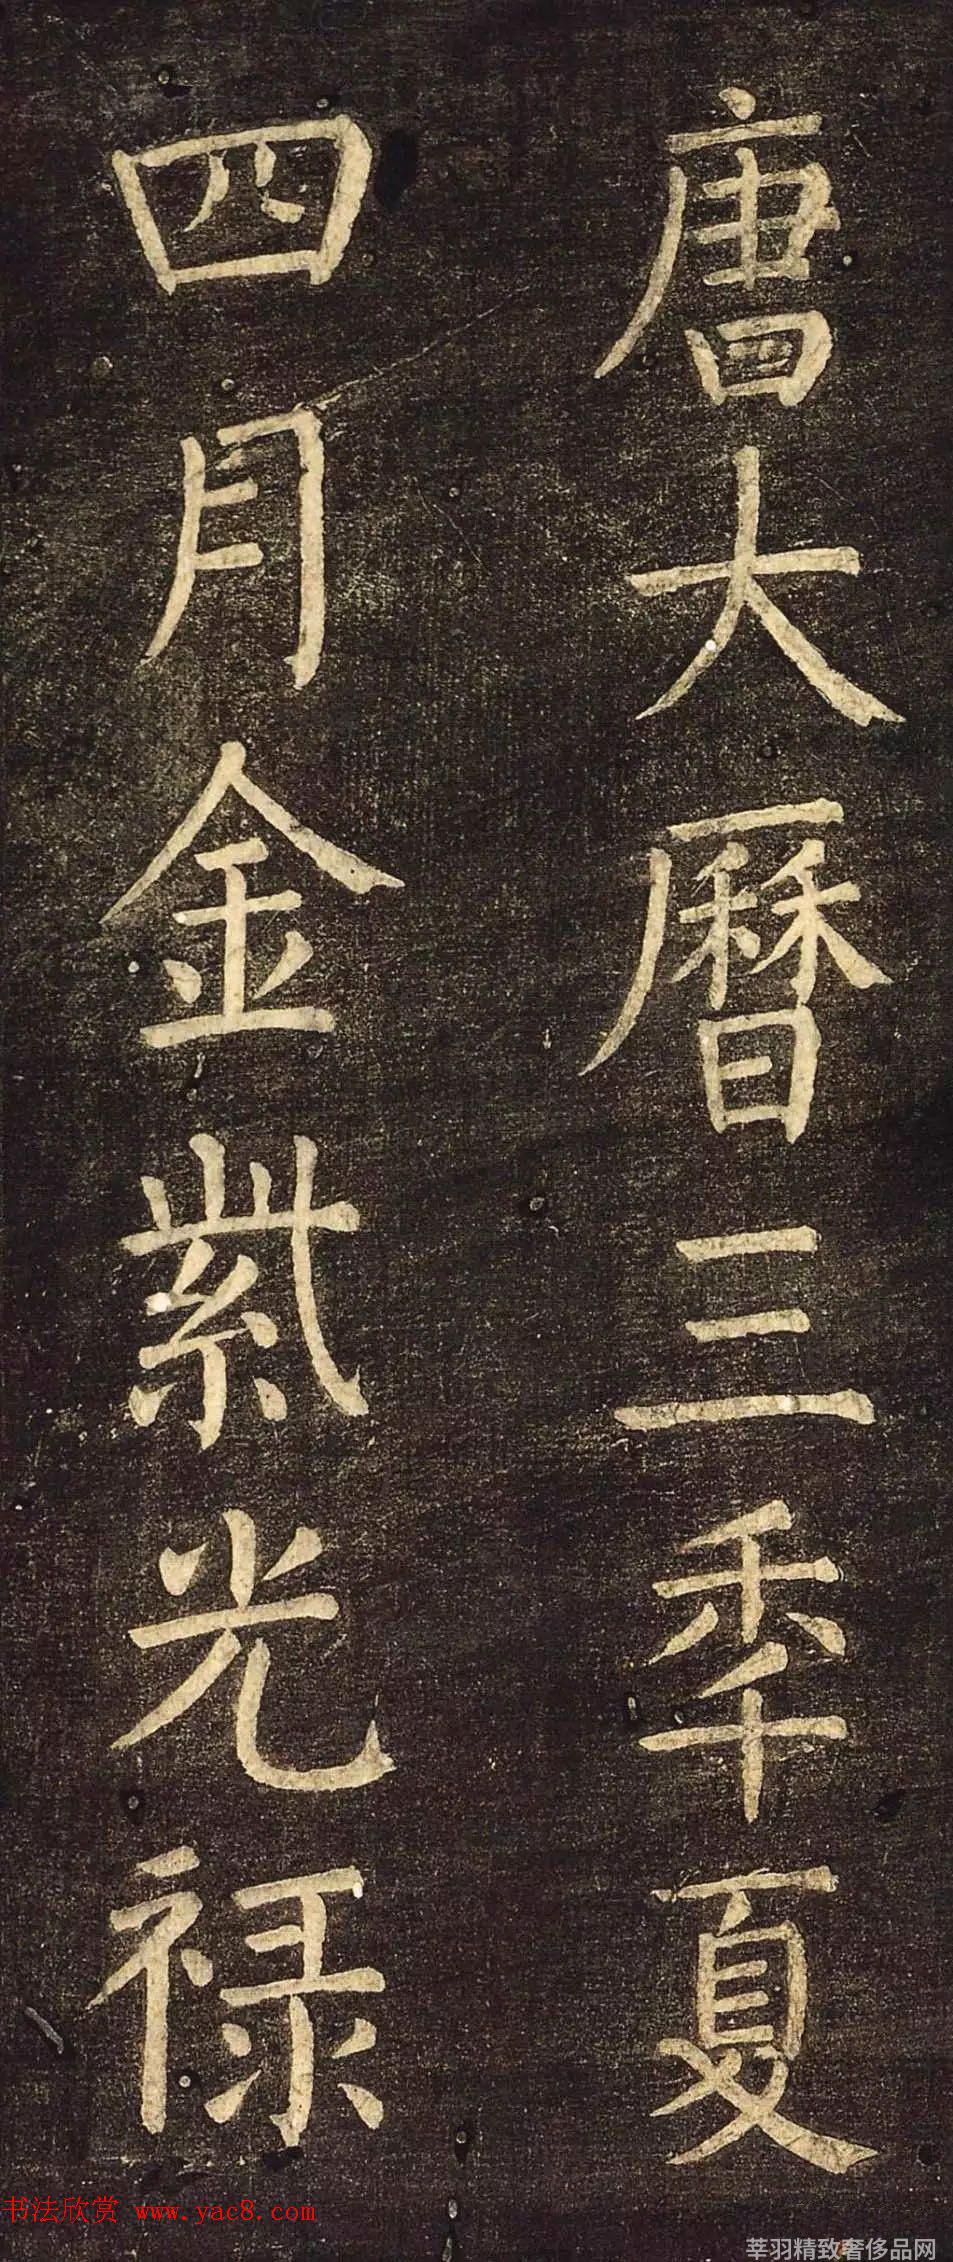 唐大曆三秊夏
四月金紫光禄
书法欣赏 www.yac8.com
莘羽精致奢侈品网